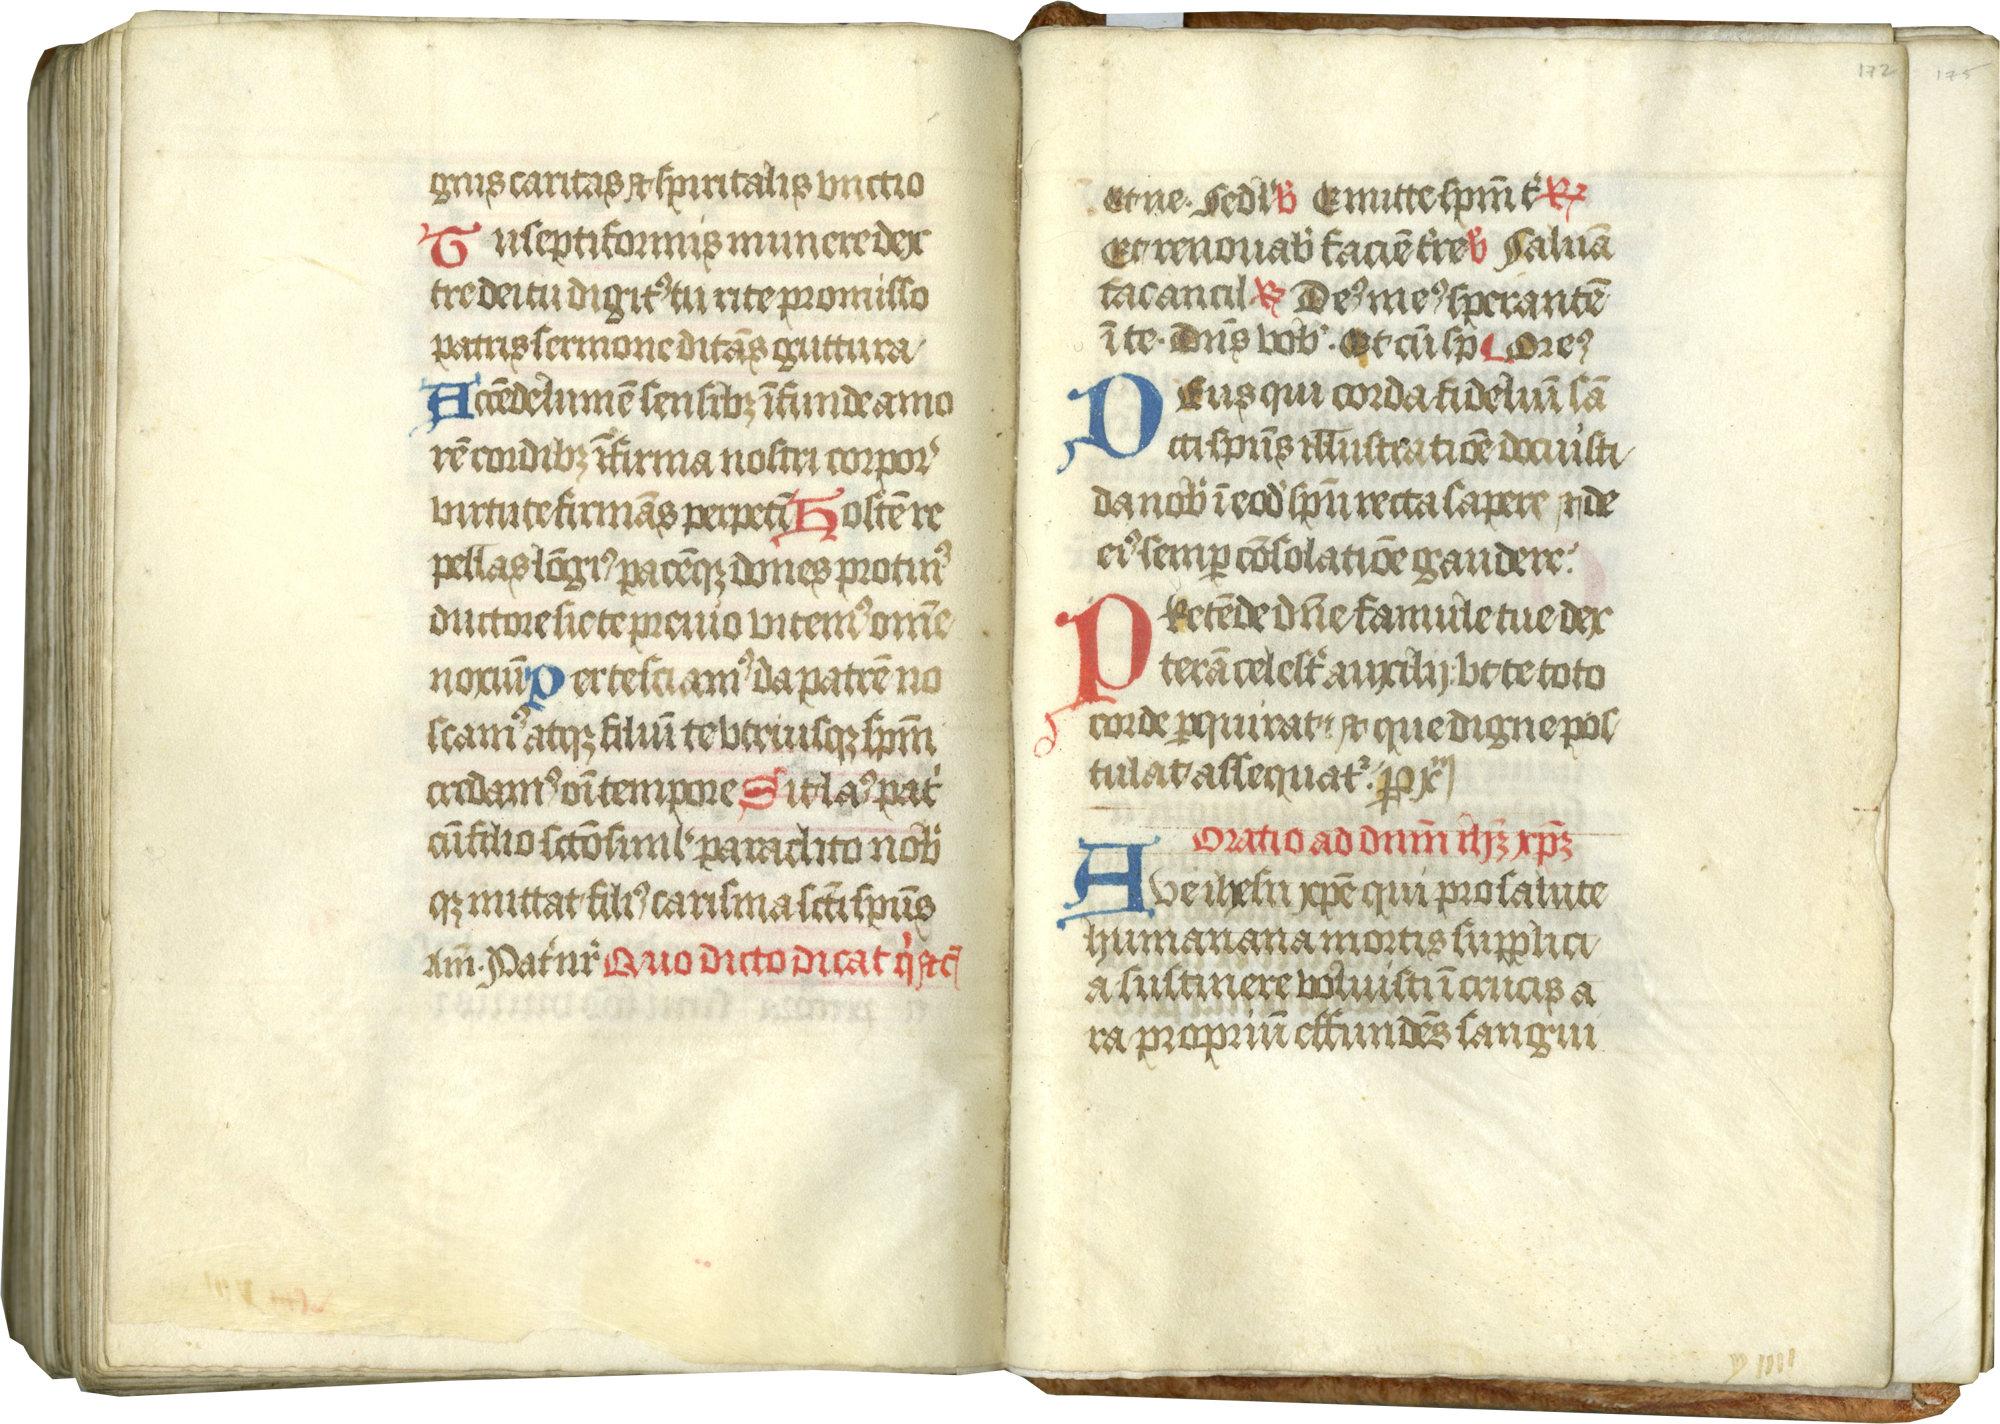 gnis caritas et spiritalis vnctio
Tu septiformis munere dex
tre dei tu digitꝰ tu rite promisso
patris sermone ditās guttura
Accēde lumē sensibꝫ īfunde amo
rē cordibꝫ īfirma nostri corpor
virtute firmās perpeti Hostē re
pellas lōgiꝰ pacēqꝫ dones protinꝰ
ductore sic te preuio vitemꝰ omne
noxiū Per te sciamꝰ da patrē no
scamꝰ atqꝫ filiū te vtriusqꝫ spm̄
credamꝰ oī tempore Sit laꝰ pat̄
cū filio sctō simlʼ paraclito nob̄
qꝫ mittat filiꝰ carisma sctī spūs
Am̄. Pat̄ nr̄ Quo dicto dicat
Et ne. Sed lʼ ꝟ Emitte spm̄ t̄ ℞
Et renouab̄ faciē t̄re ꝟ Saluā
fac ancil ℞ Deꝰ meꝰ sperantē
ī te. Dn̄s vob̄. Et cū sp̄ Oreꝰ
Deus qui corda fideliū sā
cti spūs illustratiōe docuisti
da nob̄ ī eod̄ spū recta sapere et de
eiꝰ semꝑ cōsolatiōe gaudere.
Pretēde dn̄e famule tue dex
terā celest̄ auxilij. vt te toto
corde ꝑquirat et que digne pos
tulat assequat᷑. ꝑ xp̄m
Oratio ad dnm̄ ihꝫ xp̄ꝫ
Ave ihesu xp̄e qui pro salute
humanana mortis supplici
a sustinere voluisti ī crucis a
ra propriū effundēs sangui
172
175
v iiii